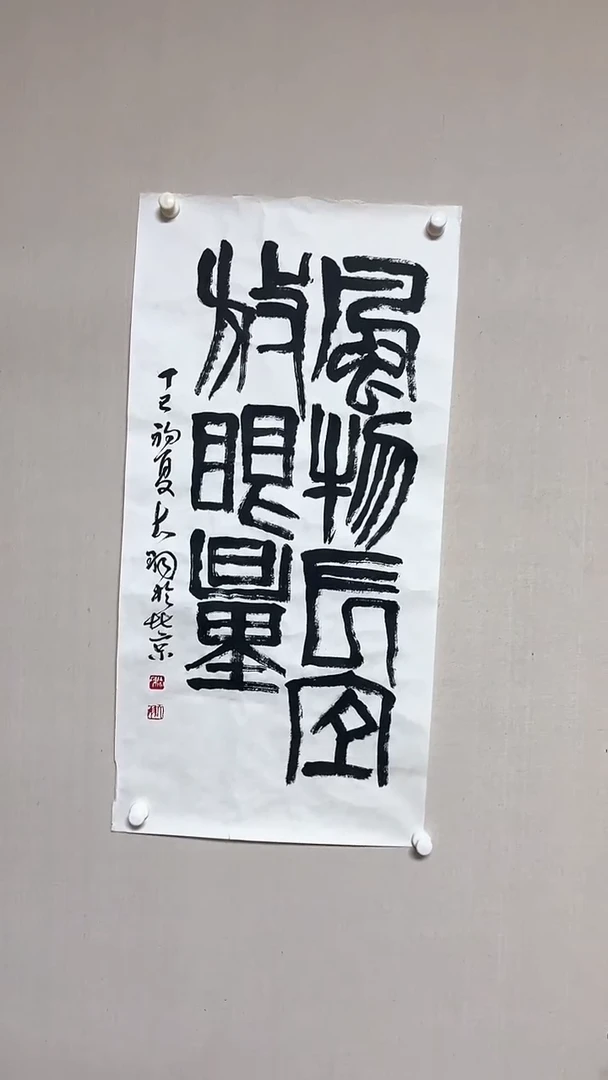 風物長宜
放眼量
丁巳初夏於北京